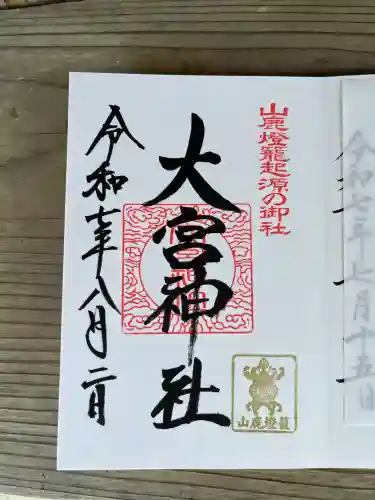 山鹿燈籠起源の御社
大宮神社
令和七年八月二日
山鹿燈籠
令和七年七月十五日